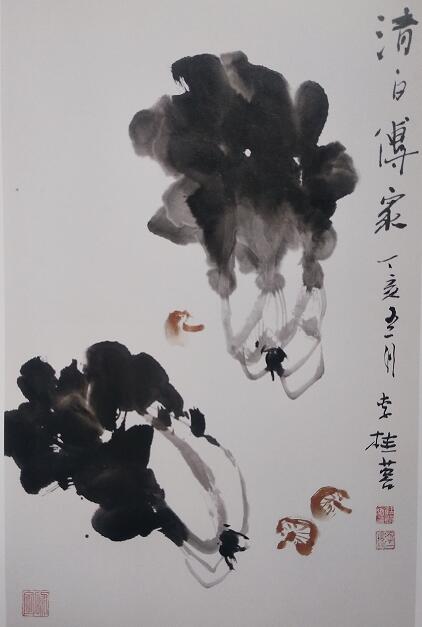 清白傳家
丁亥五月 李桂